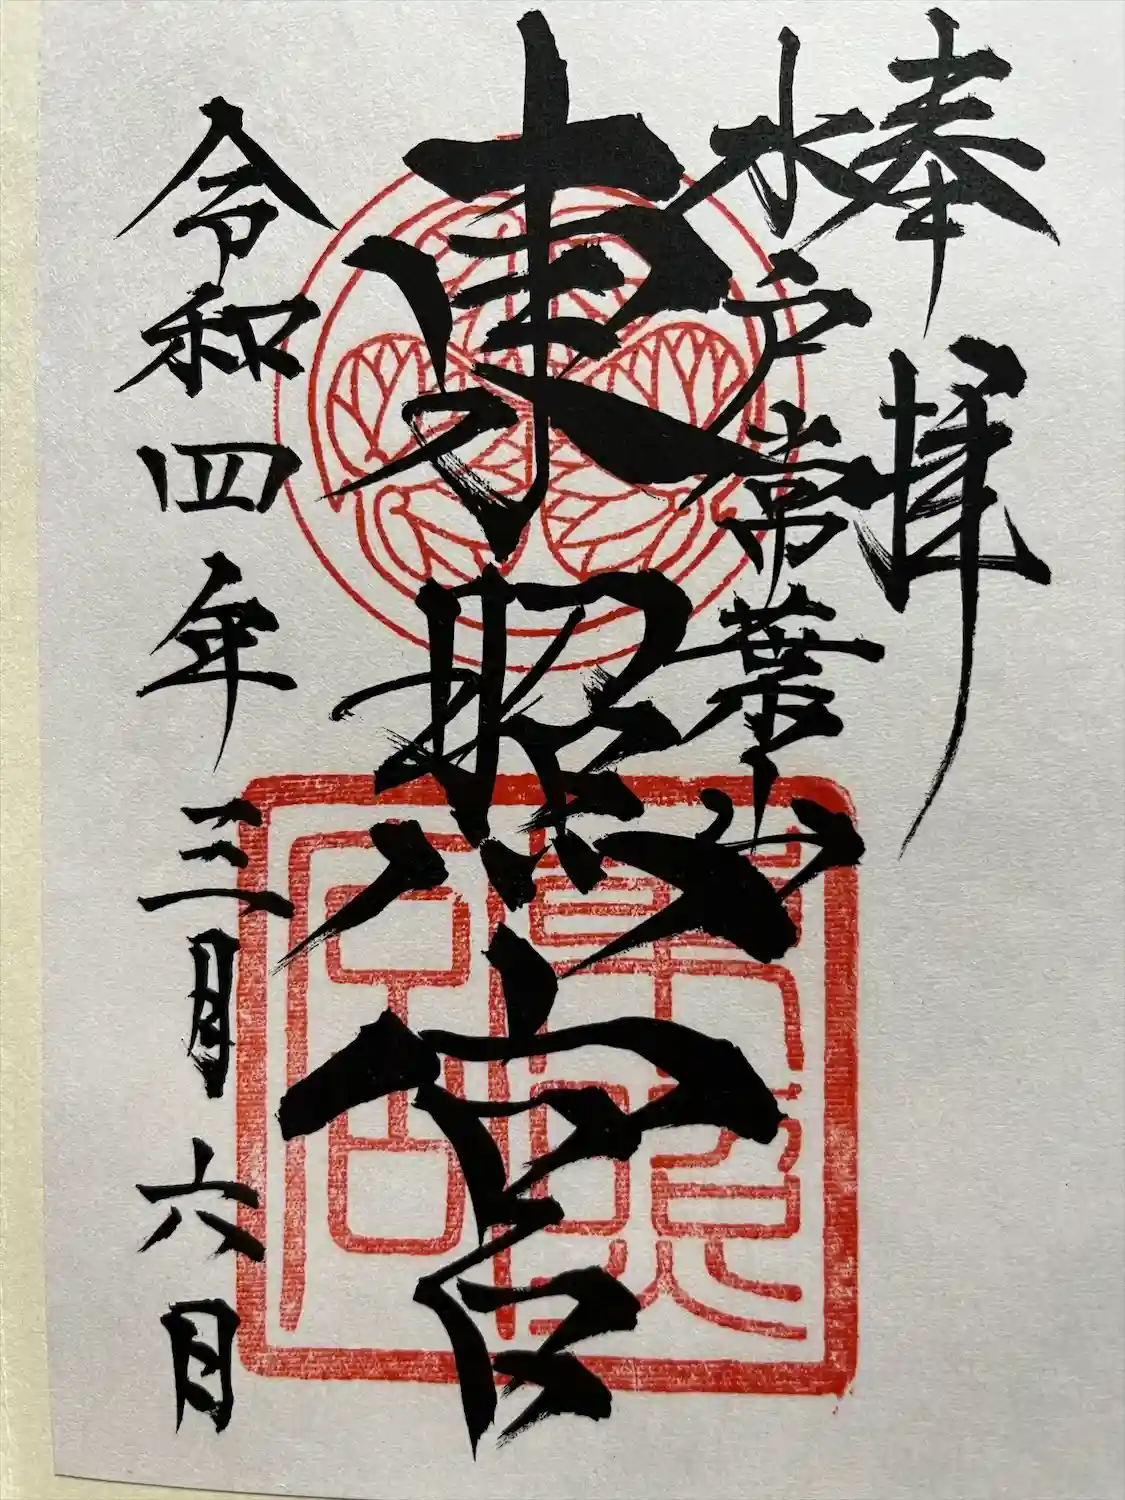 奉拝
水戸常葉山
東照宮
令和四年三月六日